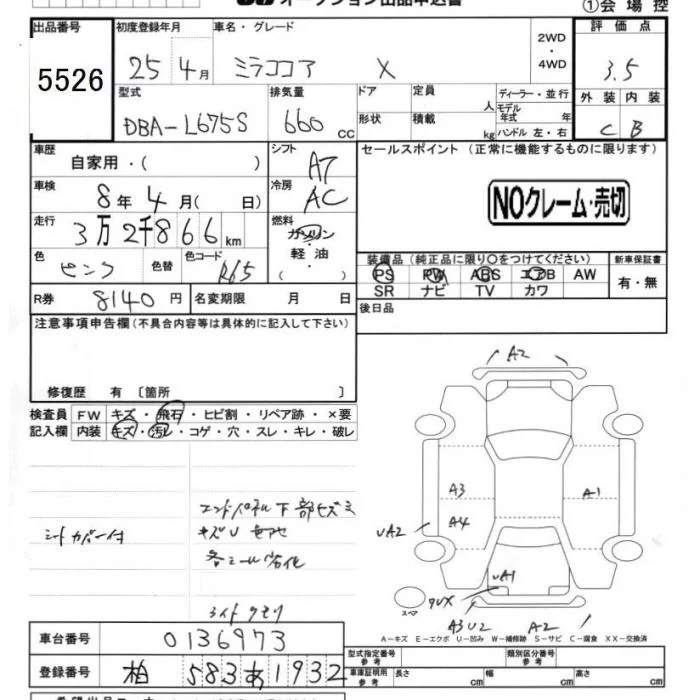 オークション出品申込書
①会場控
出品番号 初度登録年月 車名・グレード 評価点
5526 25年4月 ミラココア X 2WD・4WD 3.5
型式 排気量 ドア 定員 人 ディーラー・並行 外装 内装
DBA-L675S 660cc 形状 積載 kg モデル年式 年 C B
ハンドル 左・右
車歴 自家用・( ) シフト AT セールスポイント(正常に機能するものに限ります)
車検 8年4月( 日) 冷房 AC
NOクレーム・売切
走行 3万2千866km 燃料 ガソリン・軽油・( )
色 ピンク 色替 色コード R65
装備品(純正品に限り○をつけてください) 新車保証書
PS PW ABS エアB AW 有・無
SR ナビ TV カワ
R券 8140円 名変期限 月 日 後日品
注意事項申告欄(不具合内容等は具体的に記入して下さい)
修復歴 有〔箇所 〕
検査員 FW キズ・飛石・ヒビ割・リペア跡・×要
記入欄 内装 キズ・汚レ・コゲ・穴・スレ・キレ・破レ
A2
エンドパネル下部
シートカバー付
A3 A1
A4
UA2
UA1
スペア
A3U2 A2
ライトクモリ
A-キズ E-エクボ U-凹み W-補修跡 S-サビ C-腐食 XX-交換済
車台番号 0136973
型式指定番号 参考 類別区分番号 参考
登録番号 柏 583 あ 1932
車庫証明用 参考 長さ cm 幅 cm 高さ cm